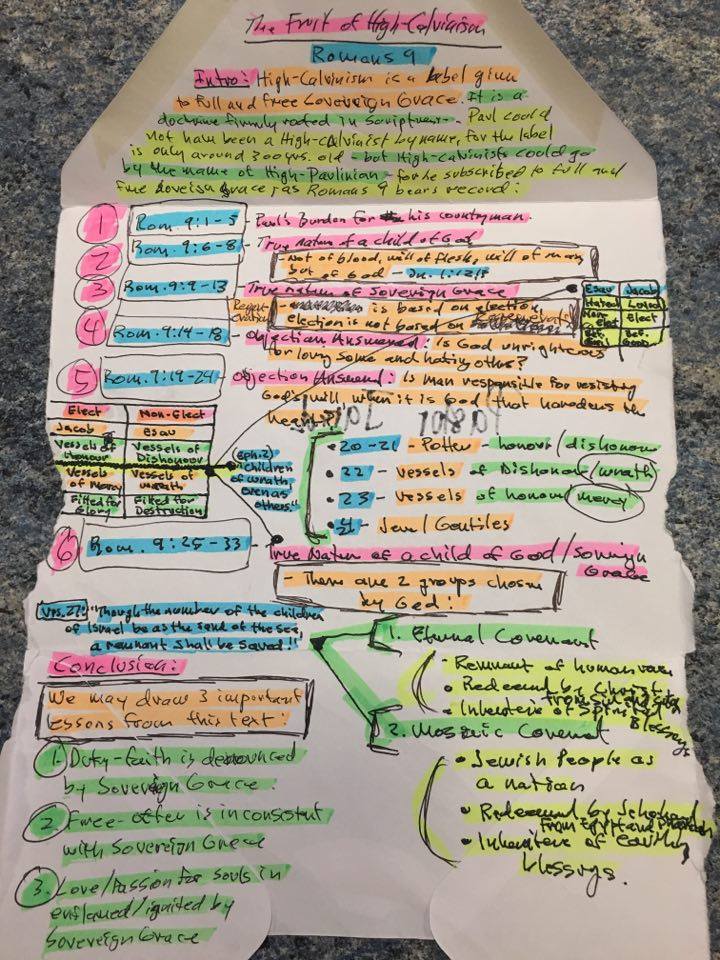 The Fruit of High-Calvinism
Romans 9
Intro: High-Calvinism is a label given
to full and free Sovereign Grace. It is a
doctrine firmly rooted in Scripture - Paul could
not have been a High-Calvinist by name, for the label
is only around 300 yrs. old - but High-Calvinists could go
by the name of High-Paulinian - for he subscribed to full and
free Sovereign Grace, as Romans 9 bears record:
1 Rom. 9:1-5 - Paul's Burden for his countryman.
2 Rom. 9:6-8 - True Nature of a child of God
- Not of blood, will of flesh, will of man
but of God - Jn. 1:12,13
3 Rom. 9:9-13 - True nature of Sovereign Grace
is based on election,
election is not based on
Esau Jacob
Hated Loved
Non-Elect Elect
4 Rom. 9:14-18 - Objection Answered: Is God unrighteous
for loving some and hating others?
5 Rom. 9:19-24 - Objection Answered: Is man responsible for resisting
God's will when it is God that hardens the
heart?
Elect Non-Elect
Jacob Esau
Vessels of Honour Vessels of Dishonour
Vessels of Mercy Vessels of Wrath
Fitted for Glory Fitted for Destruction
(Eph. 2)
"children
of wrath,
even as
others."
• 20-21 Potter - honour/dishonour
• 22 - Vessels of Dishonor/wrath
• 23 - Vessels of honour/mercy
• 24 - Jew/Gentiles
6 Rom. 9:25-33 - True Nature of a child of God/Sovereign
Grace
- There are 2 groups chosen
by God:
Vrs. 27: "Though the number of the children
of Israel be as the sand of the sea,
a remnant shall be saved!"
1. Eternal Covenant
- Remnant of human race
• Redeemed by Christ
from sin and
• Inheritors of Spiritual
Blessings
2. Mosaic Covenant
• Jewish People as
a nation
• Redeemed by Jehovah
from Egypt and
• Inheritors of earthly
blessings.
Conclusion:
We may draw 3 important
lessons from this text:
1. Duty-faith is denounced
by Sovereign Grace.
2. Free-offer is inconsistent
with Sovereign Grace
3. Love/Passion for souls in
enflamed/ignited by
Sovereign Grace